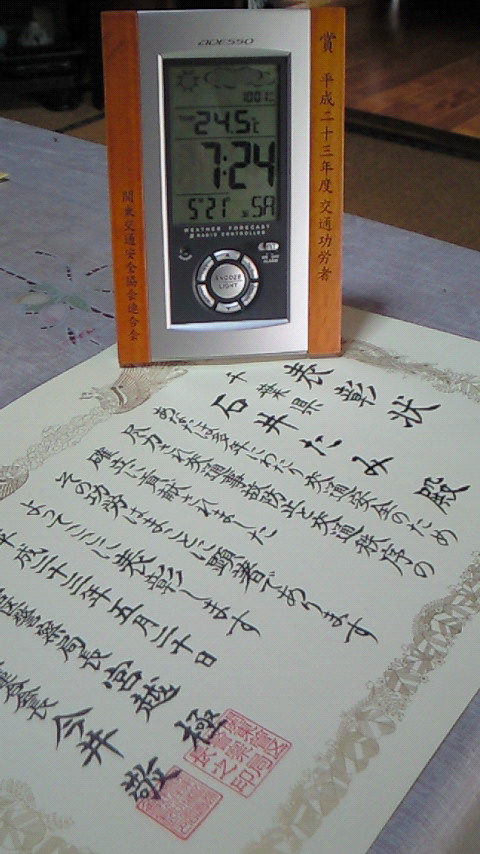 ADESSO
1001
24.5℃
7:24
5 21 SA
WEATHER FORECAST
RADIO CONTROLLED
SNOOZE
LIGHT
賞 平成二十三年度交通功労者
関東交通安全協会連合会
表彰状
千葉県
石井たみ殿
あなたは多年にわたり交通安全のため
尽力され交通事故防止と交通秩序の
確立に貢献されました
その功労はまことに顕著であります
よってここに表彰します
平成二十三年五月二十日
警察局長 宮越極
会長 今井敬